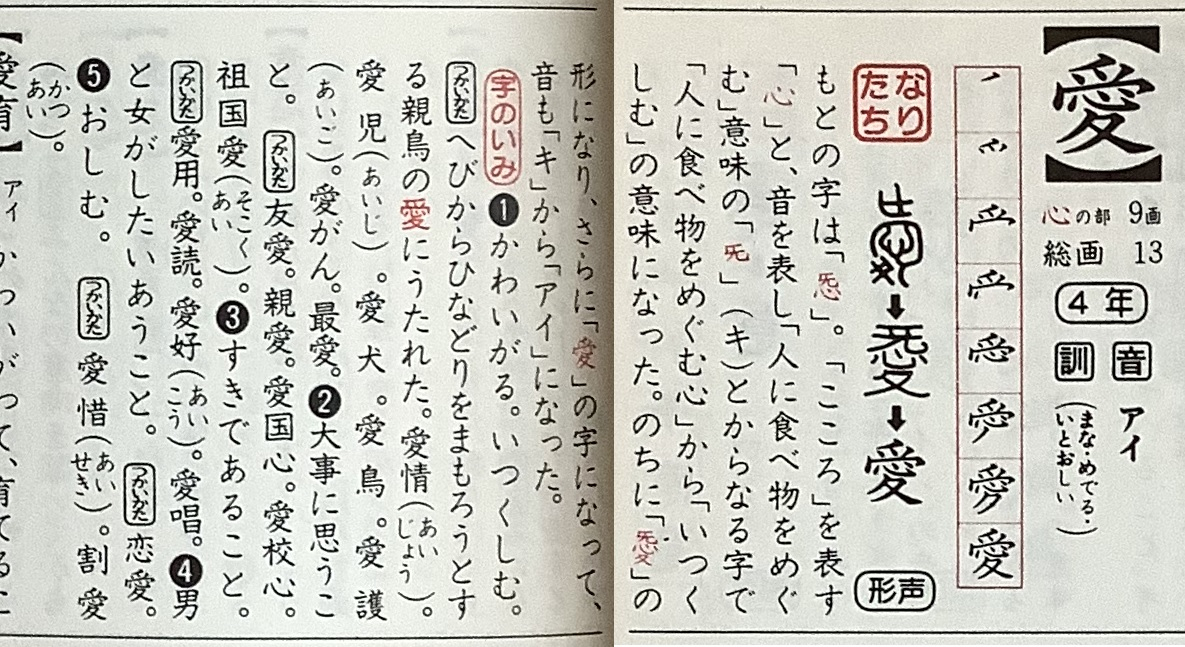 【愛】
心の部 9画
総画 13
4年
音 アイ
訓 (まな・めでる・いとおしい)
愛
なりたち
形声
もとの字は「㤅」。「こころ」を表す
「心」と、音を表し「人に食べ物をめぐ
む」意味の「旡」(キ)とからなる字で
「人に食べ物をめぐむ心」から「いつく
しむ」の意味になった。のちに「」の
形になり、さらに「愛」の字になって、
音も「キ」から「アイ」になった。
字のいみ ❶かわいがる。いつくしむ。
つかいかた へびからひなどりをまもろうとす
る親鳥の愛にうたれた。愛情(あいじょう)。
愛児(あいじ)。愛犬。愛鳥。愛護
(あいご)。愛がん。最愛。❷大事に思うこ
と。つかいかた 友愛。親愛。愛国心。愛校心。
祖国愛(そこくあい)。❸すきであること。
つかいかた 愛用。愛読。愛好(あいこう)。愛唱。❹男
と女がしたいあうこと。つかいかた 恋愛。
❺おしむ。つかいかた 愛惜(あいせき)。割愛
(かつあい)。
【愛育】アイ かわいがって、育てるこ